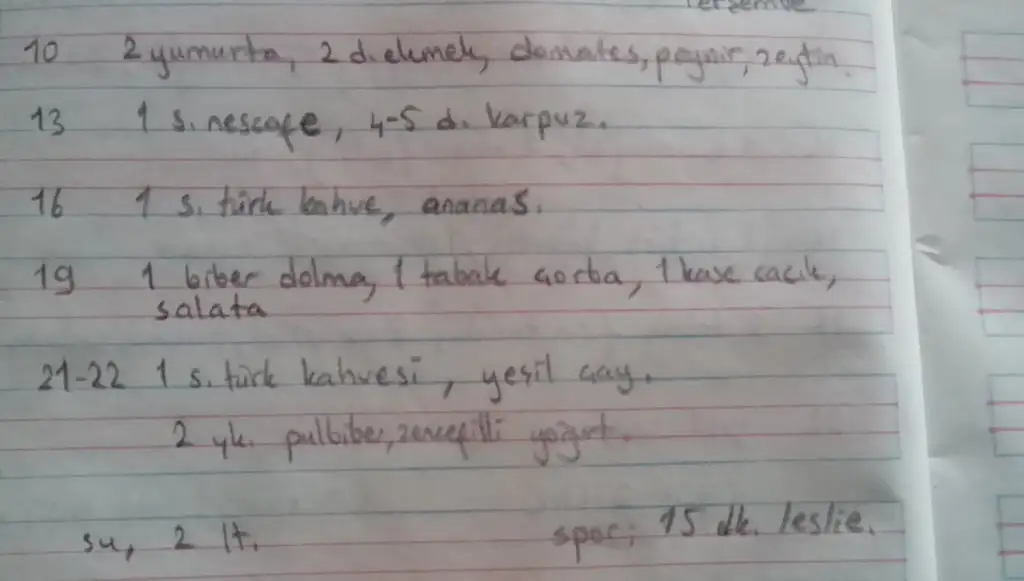 Perşembe
10 2 yumurta, 2 d. ekmek, domates, peynir, zeytin.
13 1 s. nescafe, 4-5 d. karpuz.
16 1 s. türk kahve, ananas.
19 1 biber dolma, 1 tabak çorba, 1 kase cacık,
salata
21-22 1 s. türk kahvesi, yeşil çay.
2 yk. pulbiber, zencefilli yoğurt.
su, 2 lt. spor; 15 dk. leslie.